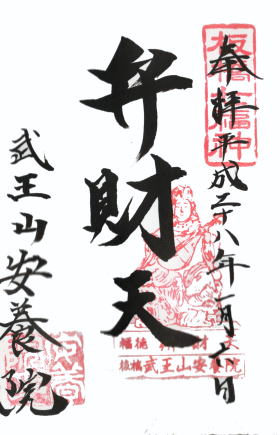 奉拝 平成二十八年一月六日
弁財天
武王山安養院
板橋七福神
福徳 弁財天
板橋 武王山安養院